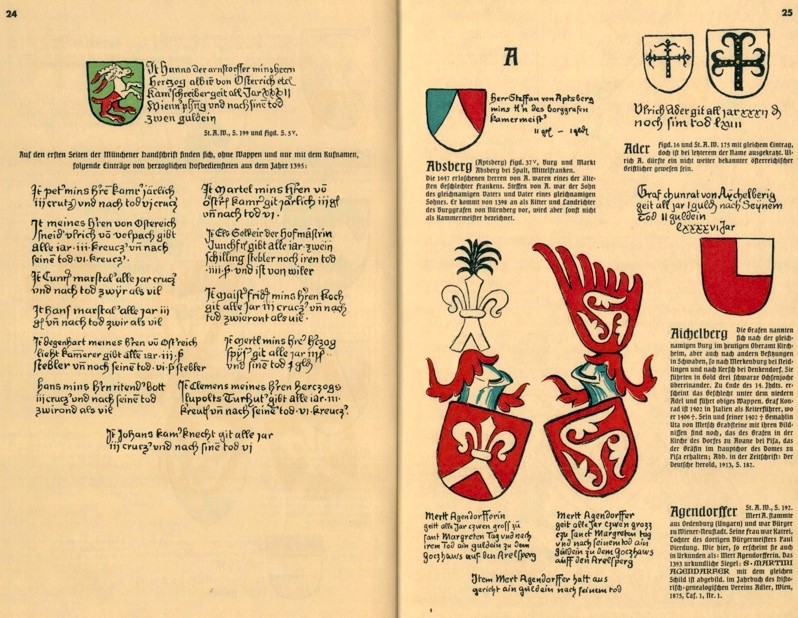 24
It Hanns der arnstorffer mins herrn
herczog albrē von Österrich etcl
kam'schreiber geit all Jar XXXII
Wienn' phn̄g und nach sinē tod
zwen guldein
St. A. W., S. 199 und figd. S. 5v.
Auf den ersten Seiten der Münchener Handschrift finden sich, ohne Wappen und nur mit dem Rufnamen,
folgende Einträge von herzoglichen Hofbediensteten aus dem Jahre 1393:
It pet' mins h're kam'r järlich
iii crutz' und nach tod vi crucz'
It meines h'ren von Östereich
sneid' ulrich vō velpach gibt
alle iar · iii · kreucz' vn̄ nach
seinē tod · vi · kreucz'.
It Cunr' marstal' alle jar crucz'
und nach tod zwÿr als vil
It hans marstal' alle jar iii
gl' vn̄ nach tod zwir als vil
It degenhart meines h'ren vō Öst'reich
lieht kam'erer gibt alle iar · iii · β
stebler vn̄ noch seinē tod · vi · β stebler
Hans mins h'rn ritend' bott
iii crucz' und nach sinē tod
zwirond als vil
It Martel mins h'rn vō
öst'r' kam' git järlich iii gl
vn̄ nach tod vi.
It Els Solkeir der Hofmästrin
Junchfr' gibt alle iar · zwein
schilling stebler noch iren tod
· iiii · β · und ist von wiler
It Maist' fridr' mins h'ren koch
git alle Jar iii crucz' vn̄ nach
tod zwieront als vil ·
It Mertl mins h're h'czog
git alle jar iii β
vn̄ sinē tod
It Clemens meines h'ren herczogs
lupolts Turhut' gibt alle iar · iii ·
kreutz' vn̄ nach seinē tod · vi · kreucz'.
It Johans kam' knecht git alle jar
iii crucz' und nach sinē tod vi
25
A
Herr Steffan von Aptsberg
mins h'n des borggrafen
kamermeist'
Absberg (Aptsberg) figd. 37v, Burg und Markt
Absberg bei Spalt, Mittelfranken.
Die 1647 erloschenen Herren von A. waren eines der älte-
sten Geschlechter Frankens. Steffan von A. war der Sohn
des gleichnamigen Vaters und Vater eines gleichnamigen
Sohnes. Er kommt von 1394 an als Ritter und Landrichter
des Burggrafen von Nürnberg vor, wird aber sonst nicht
als Kammermeister bezeichnet.
Ulrich Ader git all jar xxxii ₰
noch sim tod lxiiii
Ader figd. 16 und St. A. W. 175 mit gleichem Eintrag,
doch ist bei letzterem der Name ausgekratzt. Ul-
rich A. dürfte ein nicht weiter bekannter österreichischer
Geistlicher gewesen sein.
Graf chunrat von Aÿchelberig
geit all jar 1 guld' nach Seynem
Tod II guldein
LXXXXVI Jar
Aichelberg Die Grafen nannten
sich nach der gleich-
namigen Burg im heutigen Oberamt Kirch-
heim, aber auch nach andern Besitzungen
in Schwaben, so nach Merkenburg bei Reid-
lingen und nach Kersch bei Denkendorf. Sie
führten in Gold drei schwarze Ochsenjoche
übereinander. Zu Ende des 14. Jhdts. er-
scheint das Geschlecht unter dem niedern
Adel und führt obiges Wappen. Graf Kon-
rad ist 1402 in Italien als Reiterführer, wo
er 1406 †. Sein und seiner 1402 † Gemahlin
Uta von Metsch Grabsteine mit ihren Bild-
nissen sind noch, das des Grafen in der
Kirche des Dorfes zu Avane bei Pisa, das
der Gräfin im Hauptchor des Domes zu
Pisa erhalten; Abb. in der Zeitschrift: Der
Deutsche Herold, 1913, S. 182.
Mertt Agendorfferin
geitt alle Jar czwen gross zü
sant Margreten Tag vnd nach
irem Tod ain guldein zu dem
goczhaws auf den Arelsperg
Mertt Agendorffer
geit alle Jar Czwen grozz
czu sanct Margreten tag
vnd nach seinem tod ain
güldein zu dem goczhaws
auff den Areelsperg
Item Mert Agendorffer hatt aus
gericht ain guldein nach seinem tod
Agendorffer St. A. W., S. 192.
Mert A. stammte
aus Oedenburg (Ungarn) und war Bürger
zu Wiener-Neustadt. Seine Frau war Katrei,
Tochter des dortigen Bürgermeisters Paul
Vierdung. Wie hier, so erscheint sie auch
in Urkunden als: Mert Agendorfferin. Das
1393 urkundliche Siegel: S· MARTINI
AGENDARFER mit dem gleichen
Schild ist abgebild. im Jahrbuch des Histo-
risch-genealogischen Vereins Adler, Wien,
1875, Taf. 1, Nr. 1.